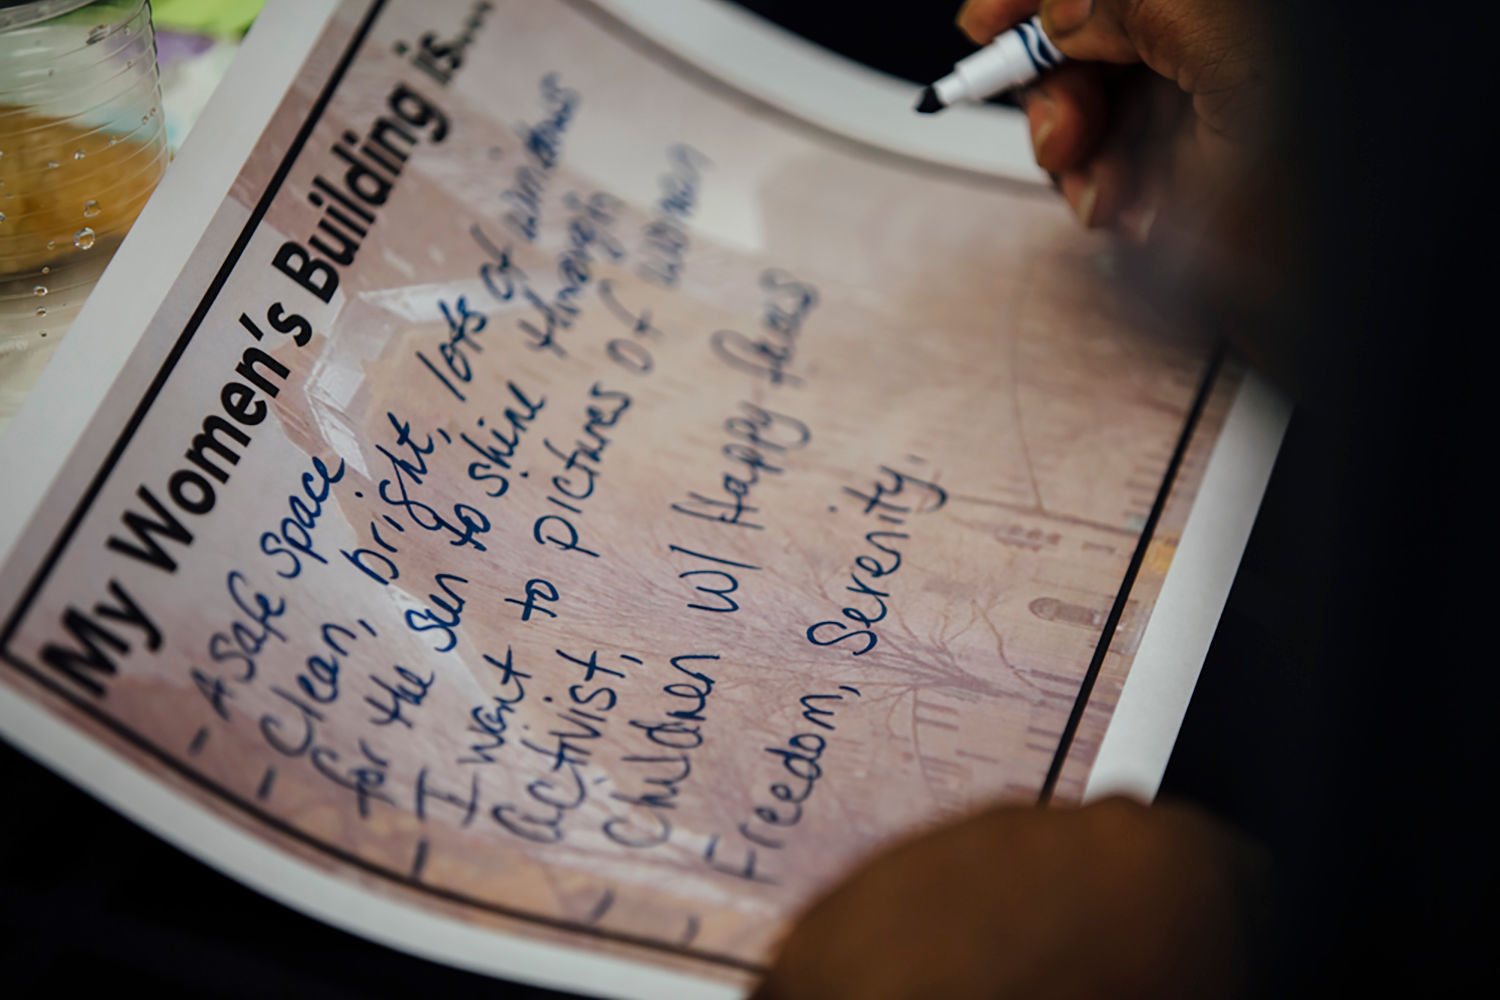 My Women's Building is...
- A Safe Space
- Clean, bright, lots of windows
for the sun to shine through
- I want to pictures of women
activist,
- Children w/ Happy faces
- Freedom, Serenity.